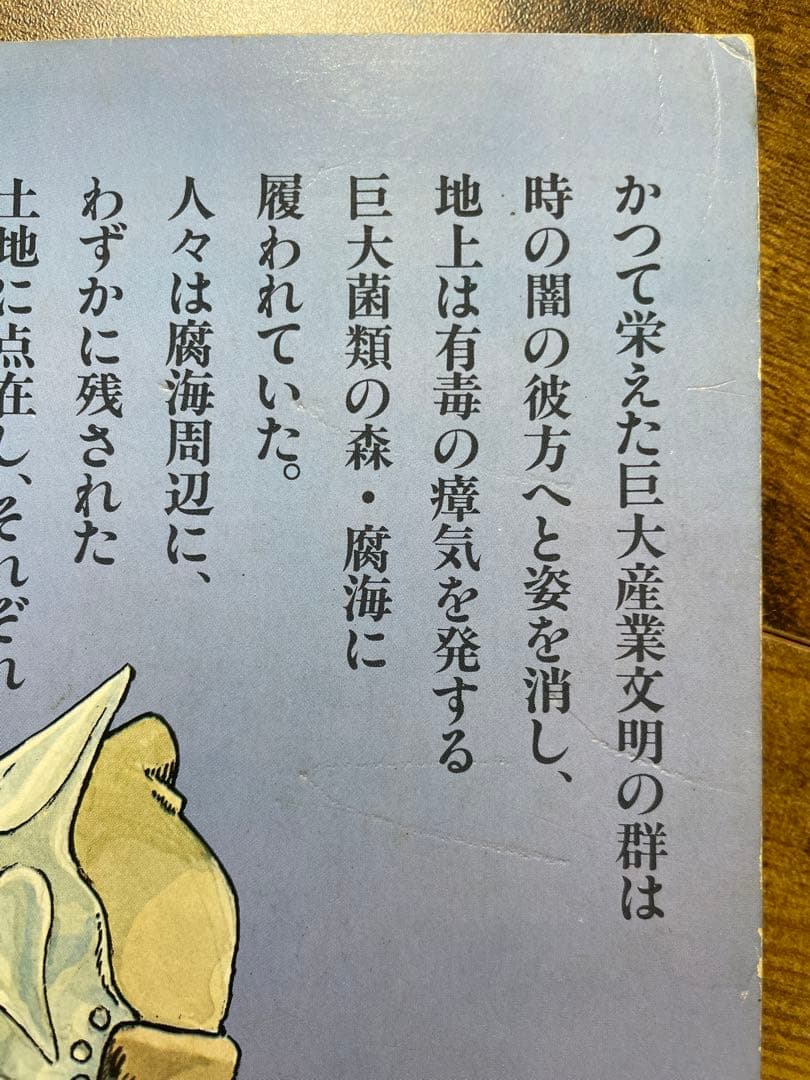 かつて栄えた巨大産業文明の群は
時の闇の彼方へと姿を消し、
地上は有毒の瘴気を発する
巨大菌類の森・腐海に
履われていた。
人々は腐海周辺に、
わずかに残された
土地に点在し、それぞれ